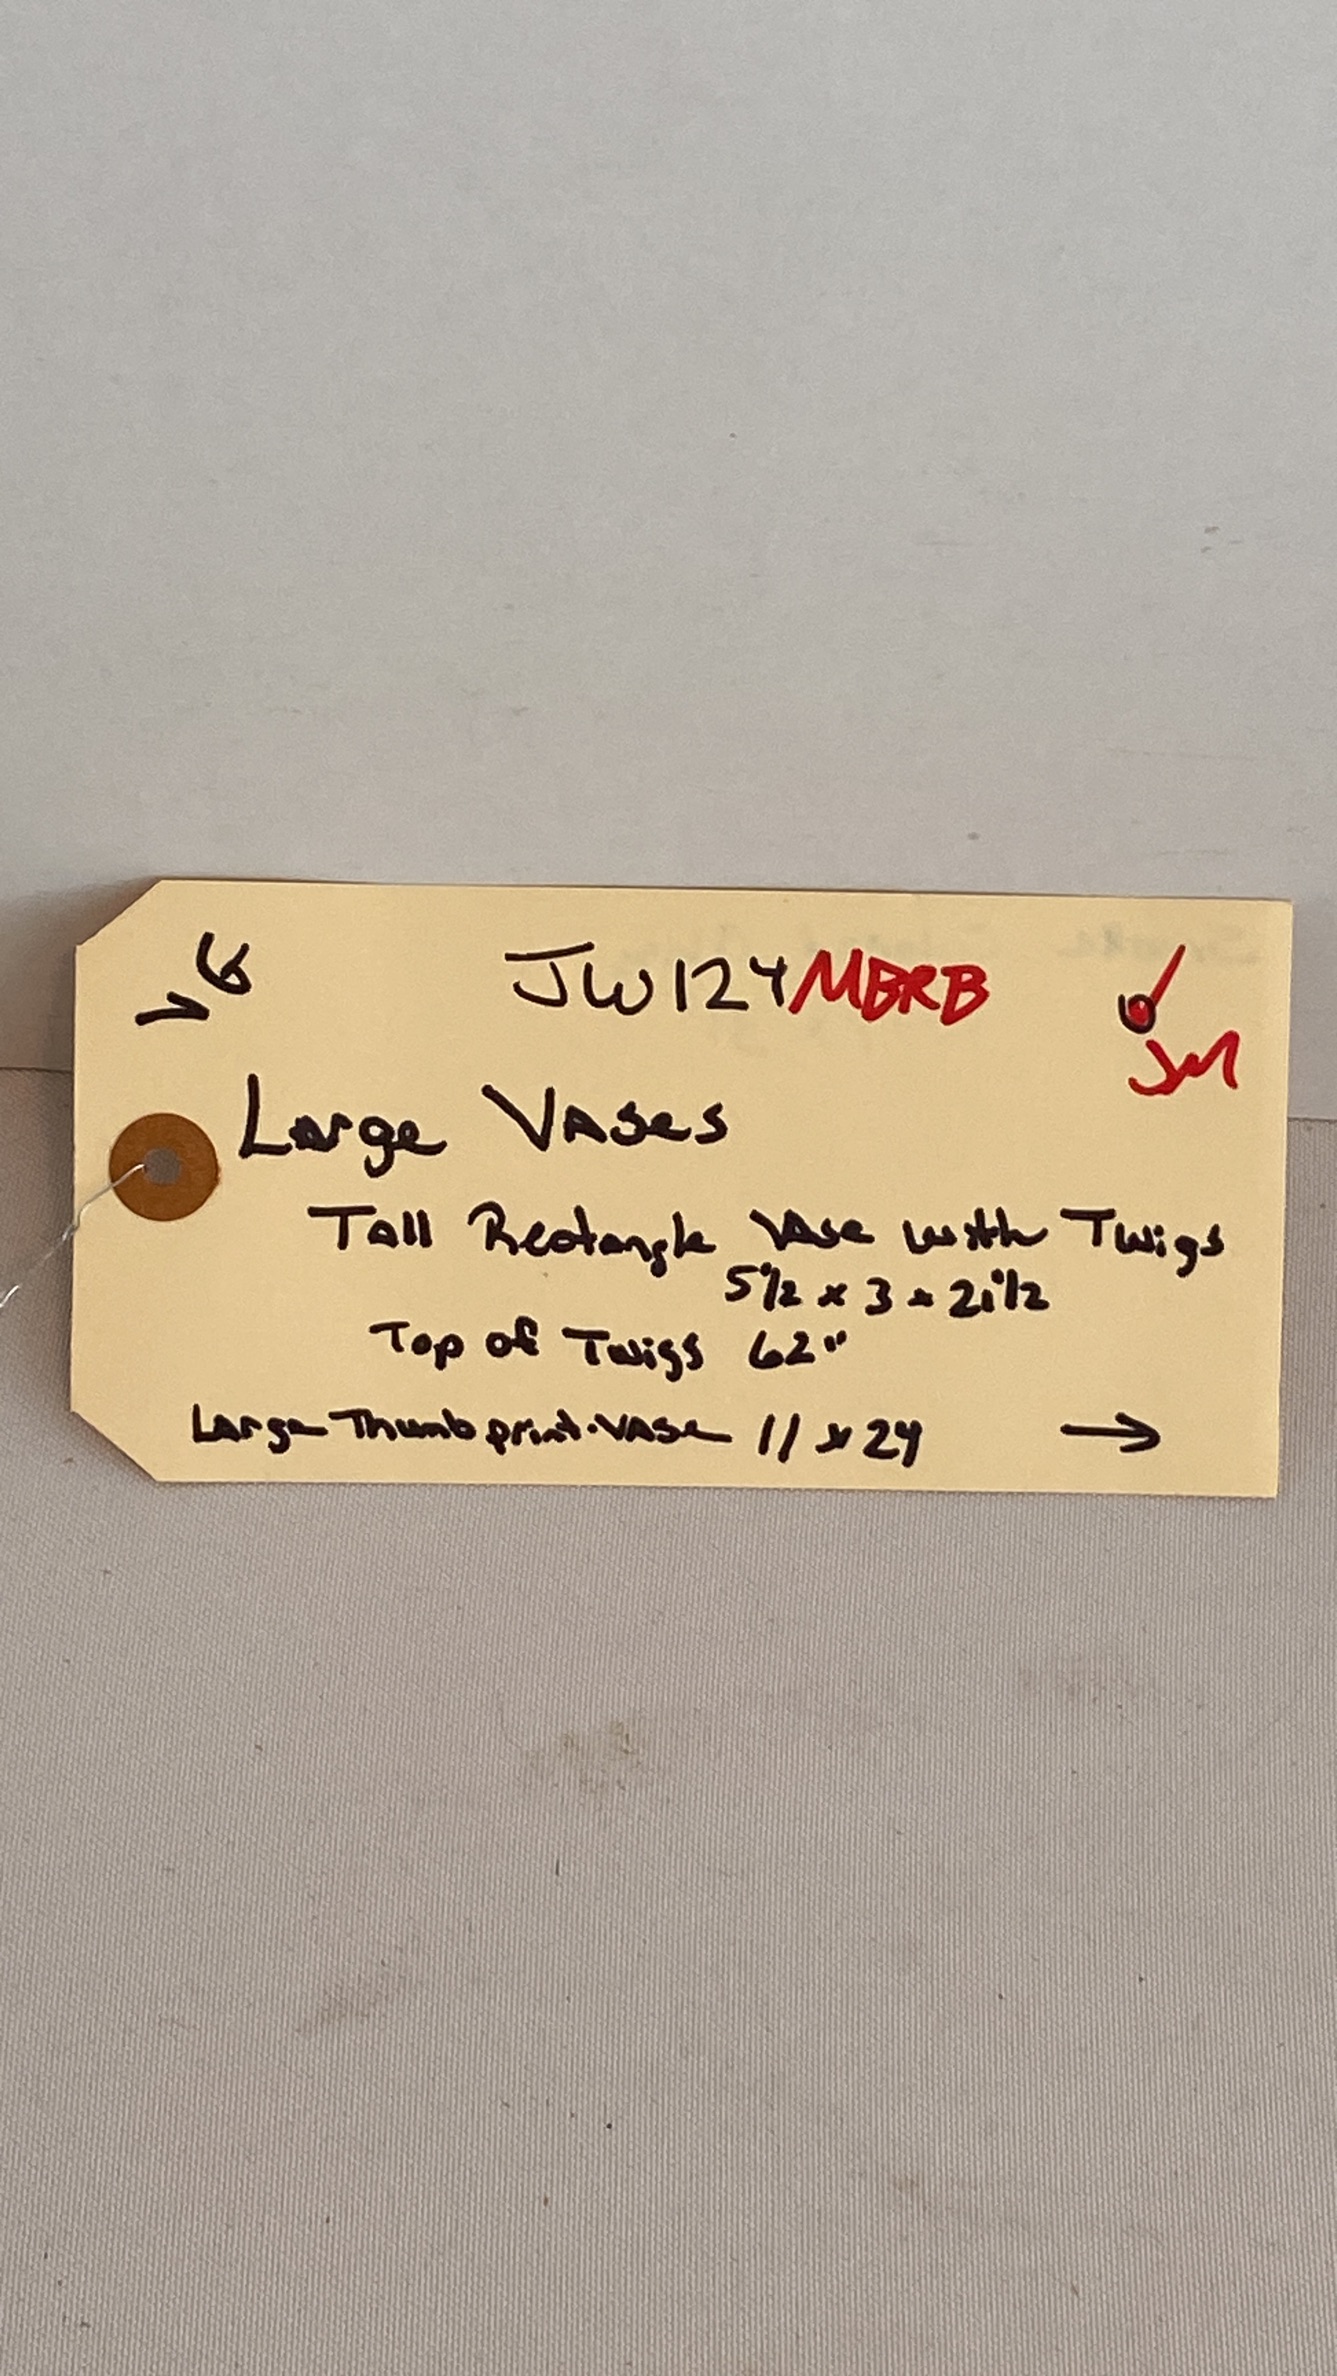 JW124MBRB
JM
Large Vases
Tall Rectangle Vase with Twigs
5 1/2 x 3 x 21 1/2
Top of Twigs 62"
Large Thumb print Vase 11 x 24 →